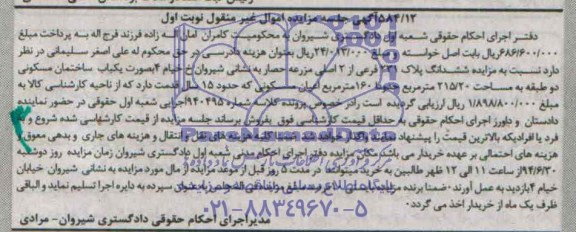 ۵۸۴/۱۲آگهی جلسه مزایده اموال غیر منقول نوبت اول
دفتر اجرای احکام حقوقی شعبه اول دادگستری شیروان محکومیت کامران زاده فرزند فرج اله به پرداخت مبلغ
۶۸۶/۶۰۰/۰۰۰ریال بابت اصل خواسته و مبلغ ۲۴/۰۲۳/۰۰۰ریال بعنوان هزینه دادرسی در حق محکوم له علی اصغر سلیمانی در نظر
دارد نسبت به مزایده ششدانگ پلاک فرعی از ۲ اصلی مزرعه حصار به نشانی شیروان خ خیام ۴بصورت یکباب ساختمان مسکونی
دو طبقه به مساحت ۲۱۵/۲۰ مترمربع ۱۶۰مترمربع اعیان مسکونی که حدود ۱۵سال قدمت دارد که از ناحیه کارشناسی کالا به
مبلغ ۱/۸۹۸/۸۰۰/۰۰۰ ریال ارزیابی گردیده است رادر خصوص پرونده کلاسه شماره ۹۴۰۴۹۵اجرایی شعبه اول حقوقی در حضور نماینده
دادستان و داورز اجرای احکام حقوقی به حداقل قیمت کارشناسی فوق بفروش برساند جلسه مزایده از قیمت کارشهاسی شده شروع و به
فرد یا افرادیکه بالاترین قیمت را پیشنهاد نمایند واگذار خواهد شد کلیه هزینه های نقل و انتقال و هزینه های جاری و بدهی معوق و
هزینه های احتمالی بر عهده خریدار می باشد مکان مزایده دفتر اجرای احکام مدنی شعبه اول دادگستری شیروان زمان مزایده روز دوشنبه
۹۴/۶/۳۰از ساعت ۱۱ الی ۱۲ ظهر طالبین به خرید میتوانند در مدت ۵ روز قبل از موعد مزایده از مال مورد مزایده به نشانی شیروان خیابان
خیام ۴بازدید به عمل آورند ضمنا برنده مزایده سپرده به دایره اجرا تسلیم نماید و الباقی
ظرف یک ماه از خریدار اخذ می گردد
۰۲۱-۸۸۳۴۹۶۷۰-۵
مدیر اجرای احکام حقوقی دادگستری شیروان- مرادی